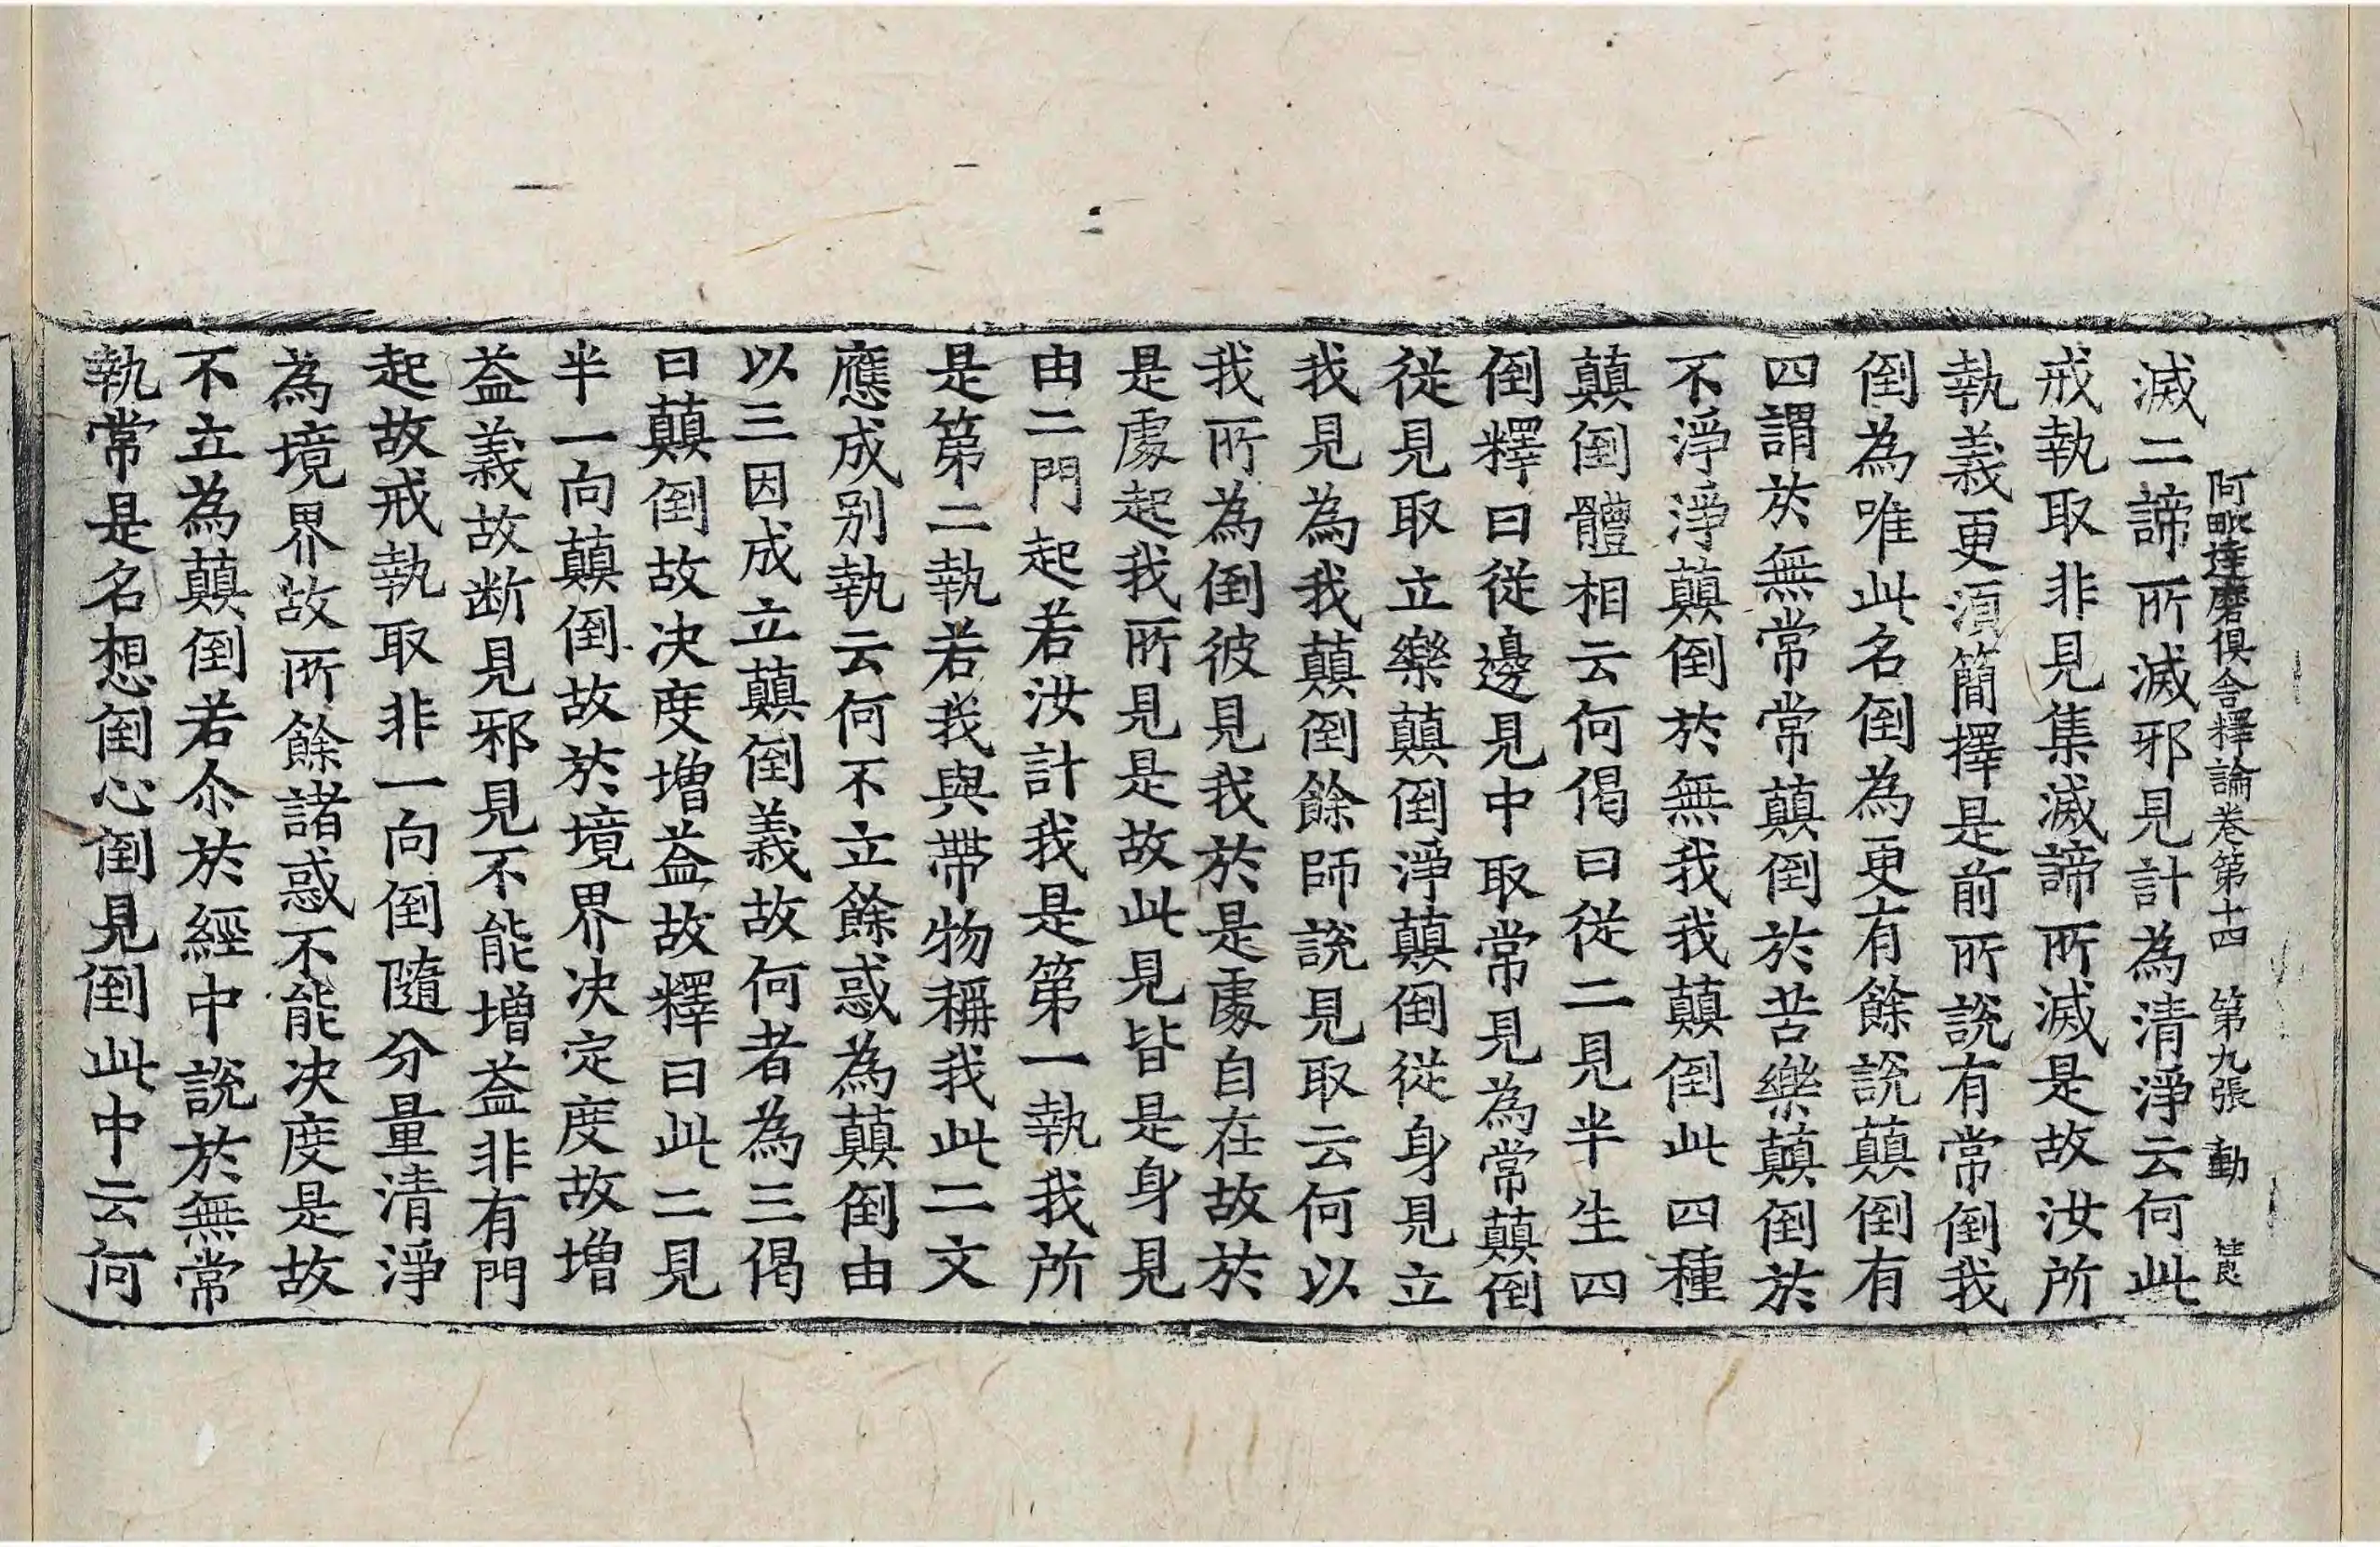 阿毗達磨俱舍釋論卷第十四 第九張 動
滅二諦所滅邪見計為清淨云何此
戒執取非見集滅諦所滅是故汝所
執義更湏簡擇是前所說有常倒我
倒為唯此名倒為更有餘說顛倒有
四謂於無常常顛倒於苦樂顛倒於
不淨淨顛倒於無我我顛倒此四種
顛倒體相云何偈曰從二見半生四
倒釋曰從邊見中取常見為常顛倒
從見取立樂顛倒淨顛倒從身見立
我見為我顛倒餘師說見取云何以
我所為倒彼見我於是處自在故於
是處起我所見是故此見皆是身見
由二門起若汝計我是第一執我所
是第二執若我與帶物稱我此二文
應成別執云何不立餘惑為顛倒由
以三因成立顛倒義故何者為三偈
曰顛倒故决度增益故釋曰此二見
半一向顛倒故於境界决定度故增
益義故断見邪見不能增益非有門
起故戒執取非一向倒隨分量清淨
為境界故所餘諸惑不能决度是故
不立為顛倒若尒於經中說於無常
執常是名想倒心倒見倒此中云何